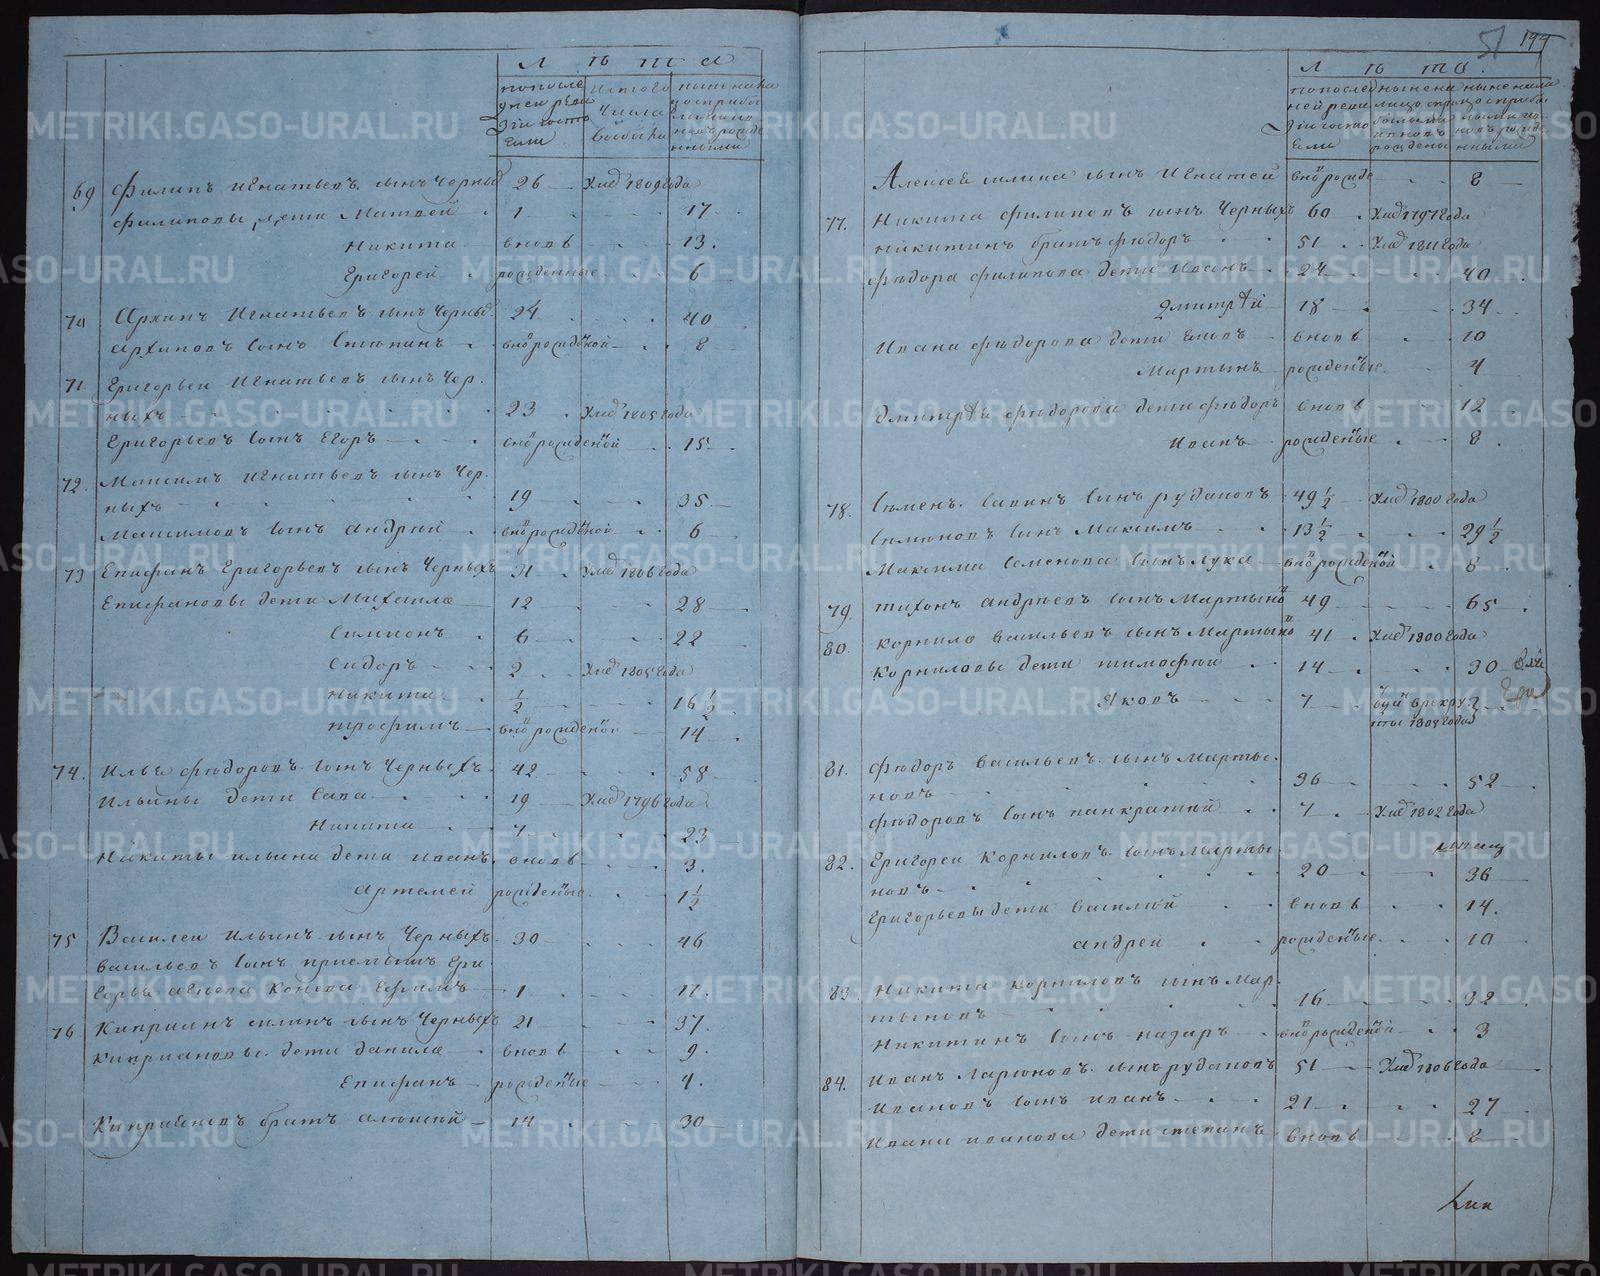 лѣта
по последней ревизіи состояли
изтого числа выбыло
69 Филипъ Игнатьевъ сынъ Черныхъ 26 Умре 1809 года
Филиповы дети Матвей 1 17
Никита вновь 13
Григорей рожденные 6
70 Архипъ Игнатьевъ сынъ Черныхъ 24 40
Архиповъ сынъ Степанъ вновьрожденной 8
71 Григорьеи Игнатьевъ сынъ Чер
ныхъ 23 Умре 1805 года
Григорьевъ сынъ Егоръ вновьрожденной 15
72 Максимъ Игнатьевъ сынъ Чер
ныхъ 19 35
Максимовъ сынъ Андрей вновьрожденной 6
73 Епифанъ Григорьевъ сынъ Черныхъ Умре 1806 года
Епифановы дети Михаила 12 28
Симионъ 6 22
Сидоръ 2 Умре 1805 года
Никита 1/2 16 1/2
Трофимъ вновьрожденной 14
74 Илья Фёдоровъ сынъ Черныхъ 42 58
Ильины дети Сава 19 Умре 1796 года
Никита 7 23
Никиты Ильина дети Иванъ вновь 3
Артемей рожденные 1 1/2
75 Василеи Ильинъ сынъ Черныхъ 30 46
Васильевъ сынъ приемышъ Гри
горья Конева Ефимъ 1 17
76 Киприанъ Ильинъ сынъ Черныхъ 21 37
Киприановы дети Данила вновь 9
Епифанъ рожденные 4
Киприановъ братъ Алексей 14 30
51 199
лѣта
по последней ревизіи состояли
ныне налицо
Алексея Ильина сынъ Игнатей вновьрожде 8
77 Никита Филиповъ сынъ Черныхъ 60 Умре 1797 года
Никитинъ братъ Фёдоръ 51 Умре 1811 года
Фёдора Филипова дети Иванъ 24 40
Дмитрей 18 34
Ивана Фёдорова дети вновь 10
Мартынъ рожденные 4
Дмитрея Фёдорова дети Фёдоръ вновь 12
Иванъ рожденые 8
78 Семенъ Савинъ сынъ Рудаковъ 49 1/2 Умре 1800 года
Семеновъ сынъ Максимъ 13 1/2 29 1/2
Максима Семенова сынъ Лука вновьрожденой 8
79 Тихонъ Андреевъ сынъ Мартыновъ 49 65
80 Корнило Васильевъ сынъ Мартыновъ 41 Умре 1800 года
Корниловы дети Тимофей 14 30
Яковъ 7 Отданъ в рекру
ты 1805 года
81 Фёдоръ Васильевъ сынъ Марты
новъ 36 52
Фёдоровъ сынъ Панкратей 7 Умре 1802 года
82 Григореи Корниловъ сынъ Марты
новъ 20 36
Григорьевы дети Василей вновь 14
Андреи рожденые 10
83 Никита Корниловъ сынъ Мар
тыновъ 16 32
Никитинъ сынъ Назаръ вновьрожденой 3
84 Иванъ Ларионовъ сынъ Рудаковъ 51 Умре 1806 года
Ивановъ сынъ Иванъ 21 27
Ивана Иванова дети Степанъ вновь 8
METRIKI.GASO-URAL.RU